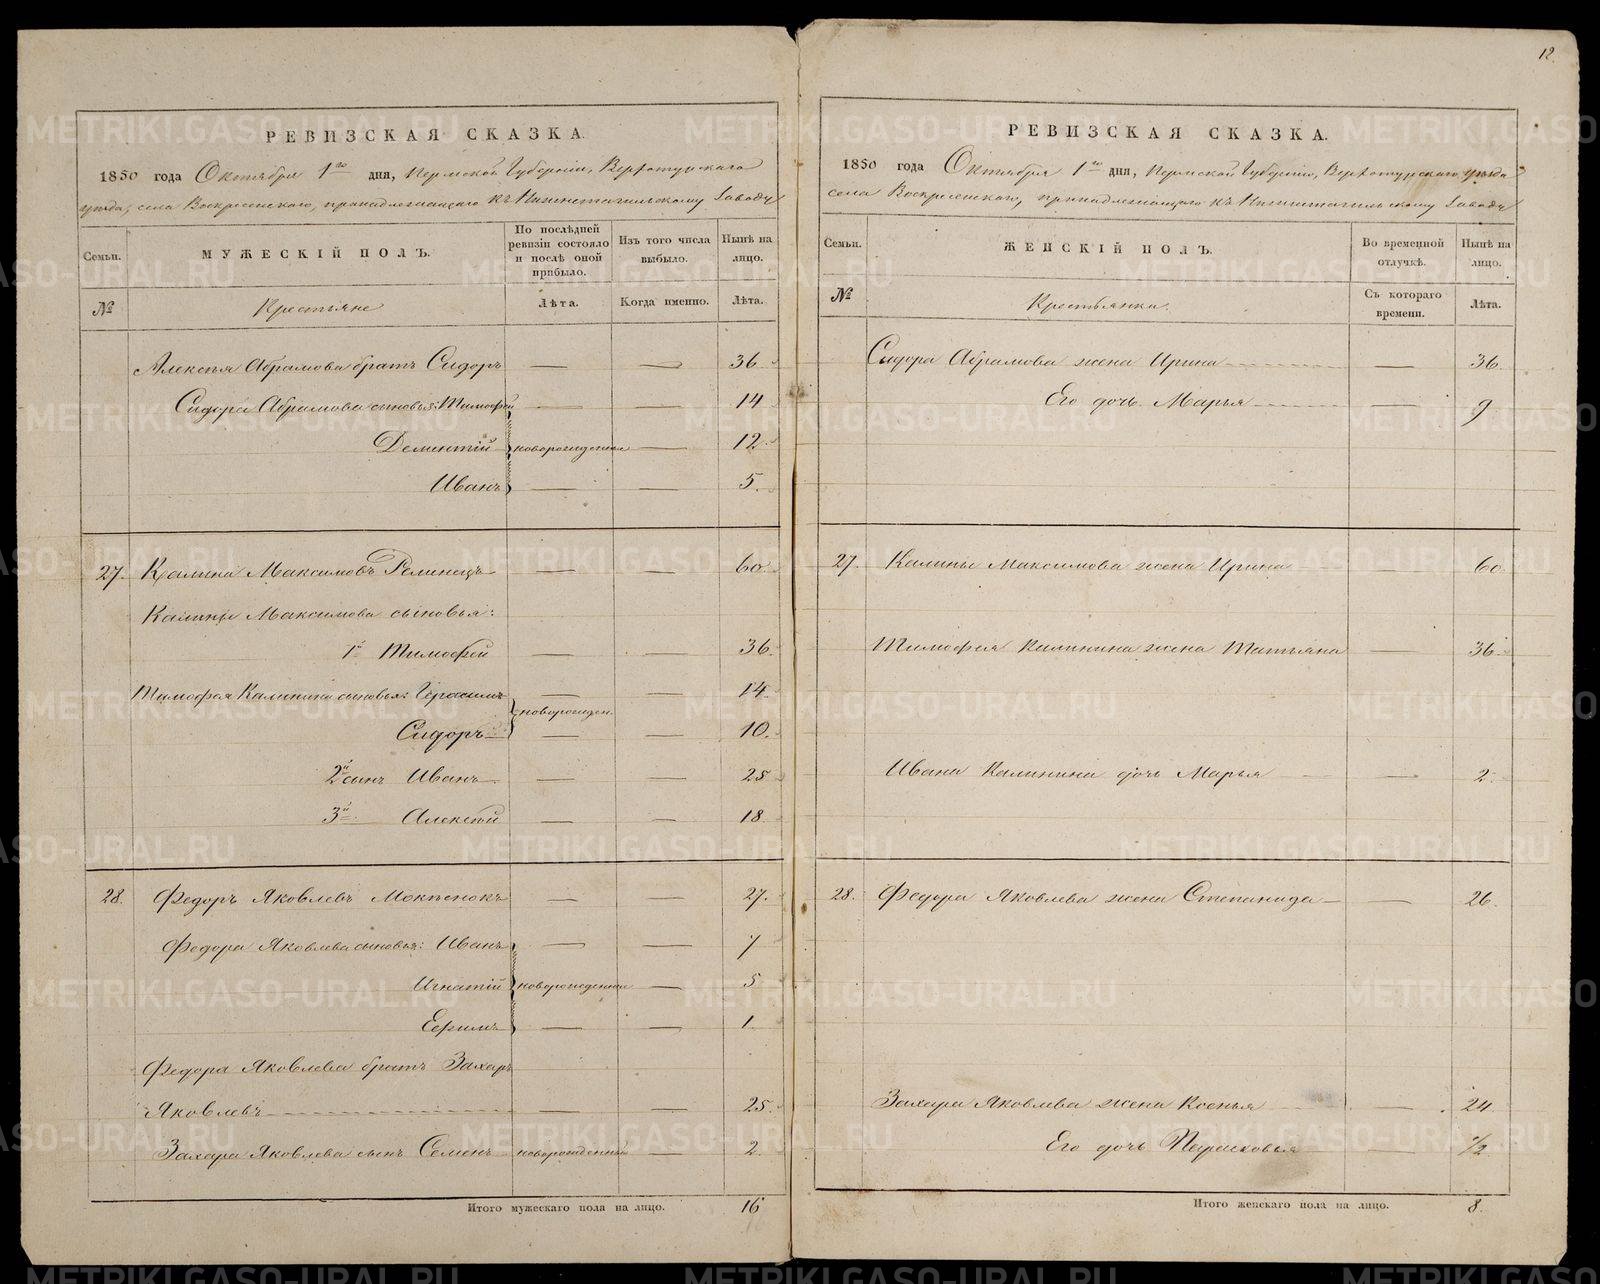 12.
РЕВИЗСКАЯ СКАЗКА.
1850 года Октября 1го дня, Пермской Губернии, Верхотурскаго
уезда, села Воскресенскаго, принадлежащаго къ Нижнетагильскому Заводу
Семьи.
МУЖЕСКІЙ ПОЛЪ.
По послѣдней ревизіи состояло и послѣ оной прибыло.
Изъ того числа выбыло.
Нынѣ на лицо.
№
Крестьяне
Лѣта.
Когда именно.
Лѣта.
Алексѣя Абрамова братъ Сидоръ — — 36.
Сидора Абрамова сыновья: Тимофей — — 14
Дементій новорожденные — 12.
Иванъ — — 5.
27. Калина Максимовъ — — 60.
Калины Максимова сыновья:
1й Тимофей — — 36.
Тимофея Калинина сыновья: Герасимъ — — 14
новорожден.
Сидоръ — — 10.
2й сынъ Иванъ — — 25
3й Алексѣй — — 18
28. Федоръ Яковлевъ — — 27.
Федора Яковлева сыновья: Иванъ — — 7
Игнатій новорожденные — 5
Ефимъ — — 1
Федора Яковлева братъ Захаръ
Яковлевъ — — 25.
Захара Яковлева сынъ Семенъ новорожденный — 2.
Итого мужескаго пола на лицо. 16
РЕВИЗСКАЯ СКАЗКА.
1850 года Октября 1го дня, Пермской Губерніи, Верхотурскаго уезда
села Воскресенскаго, принадлежащаго къ Нижнетагильскому Заводу
Семьи.
ЖЕНСКІЙ ПОЛЪ.
Во временной отлучкѣ.
Нынѣ на лицо.
№
Крестьянки.
Съ котораго времени.
Лѣта.
Сидора Абрамова жена Ирина — 36.
Его дочь Марья 9
27. Калины Максимова жена Ирина — — 60.
Тимофея Калинина жена Татьяна — 36.
Ивана Калинина дочь Марья — — 2.
28. Федора Яковлева жена Степанида — — 26.
Захара Яковлева жена Ксенья — — 24.
Его дочь Парасковья — 1/2
Итого женскаго пола на лицо. 8.
METRIKI.GASO-URAL.RU